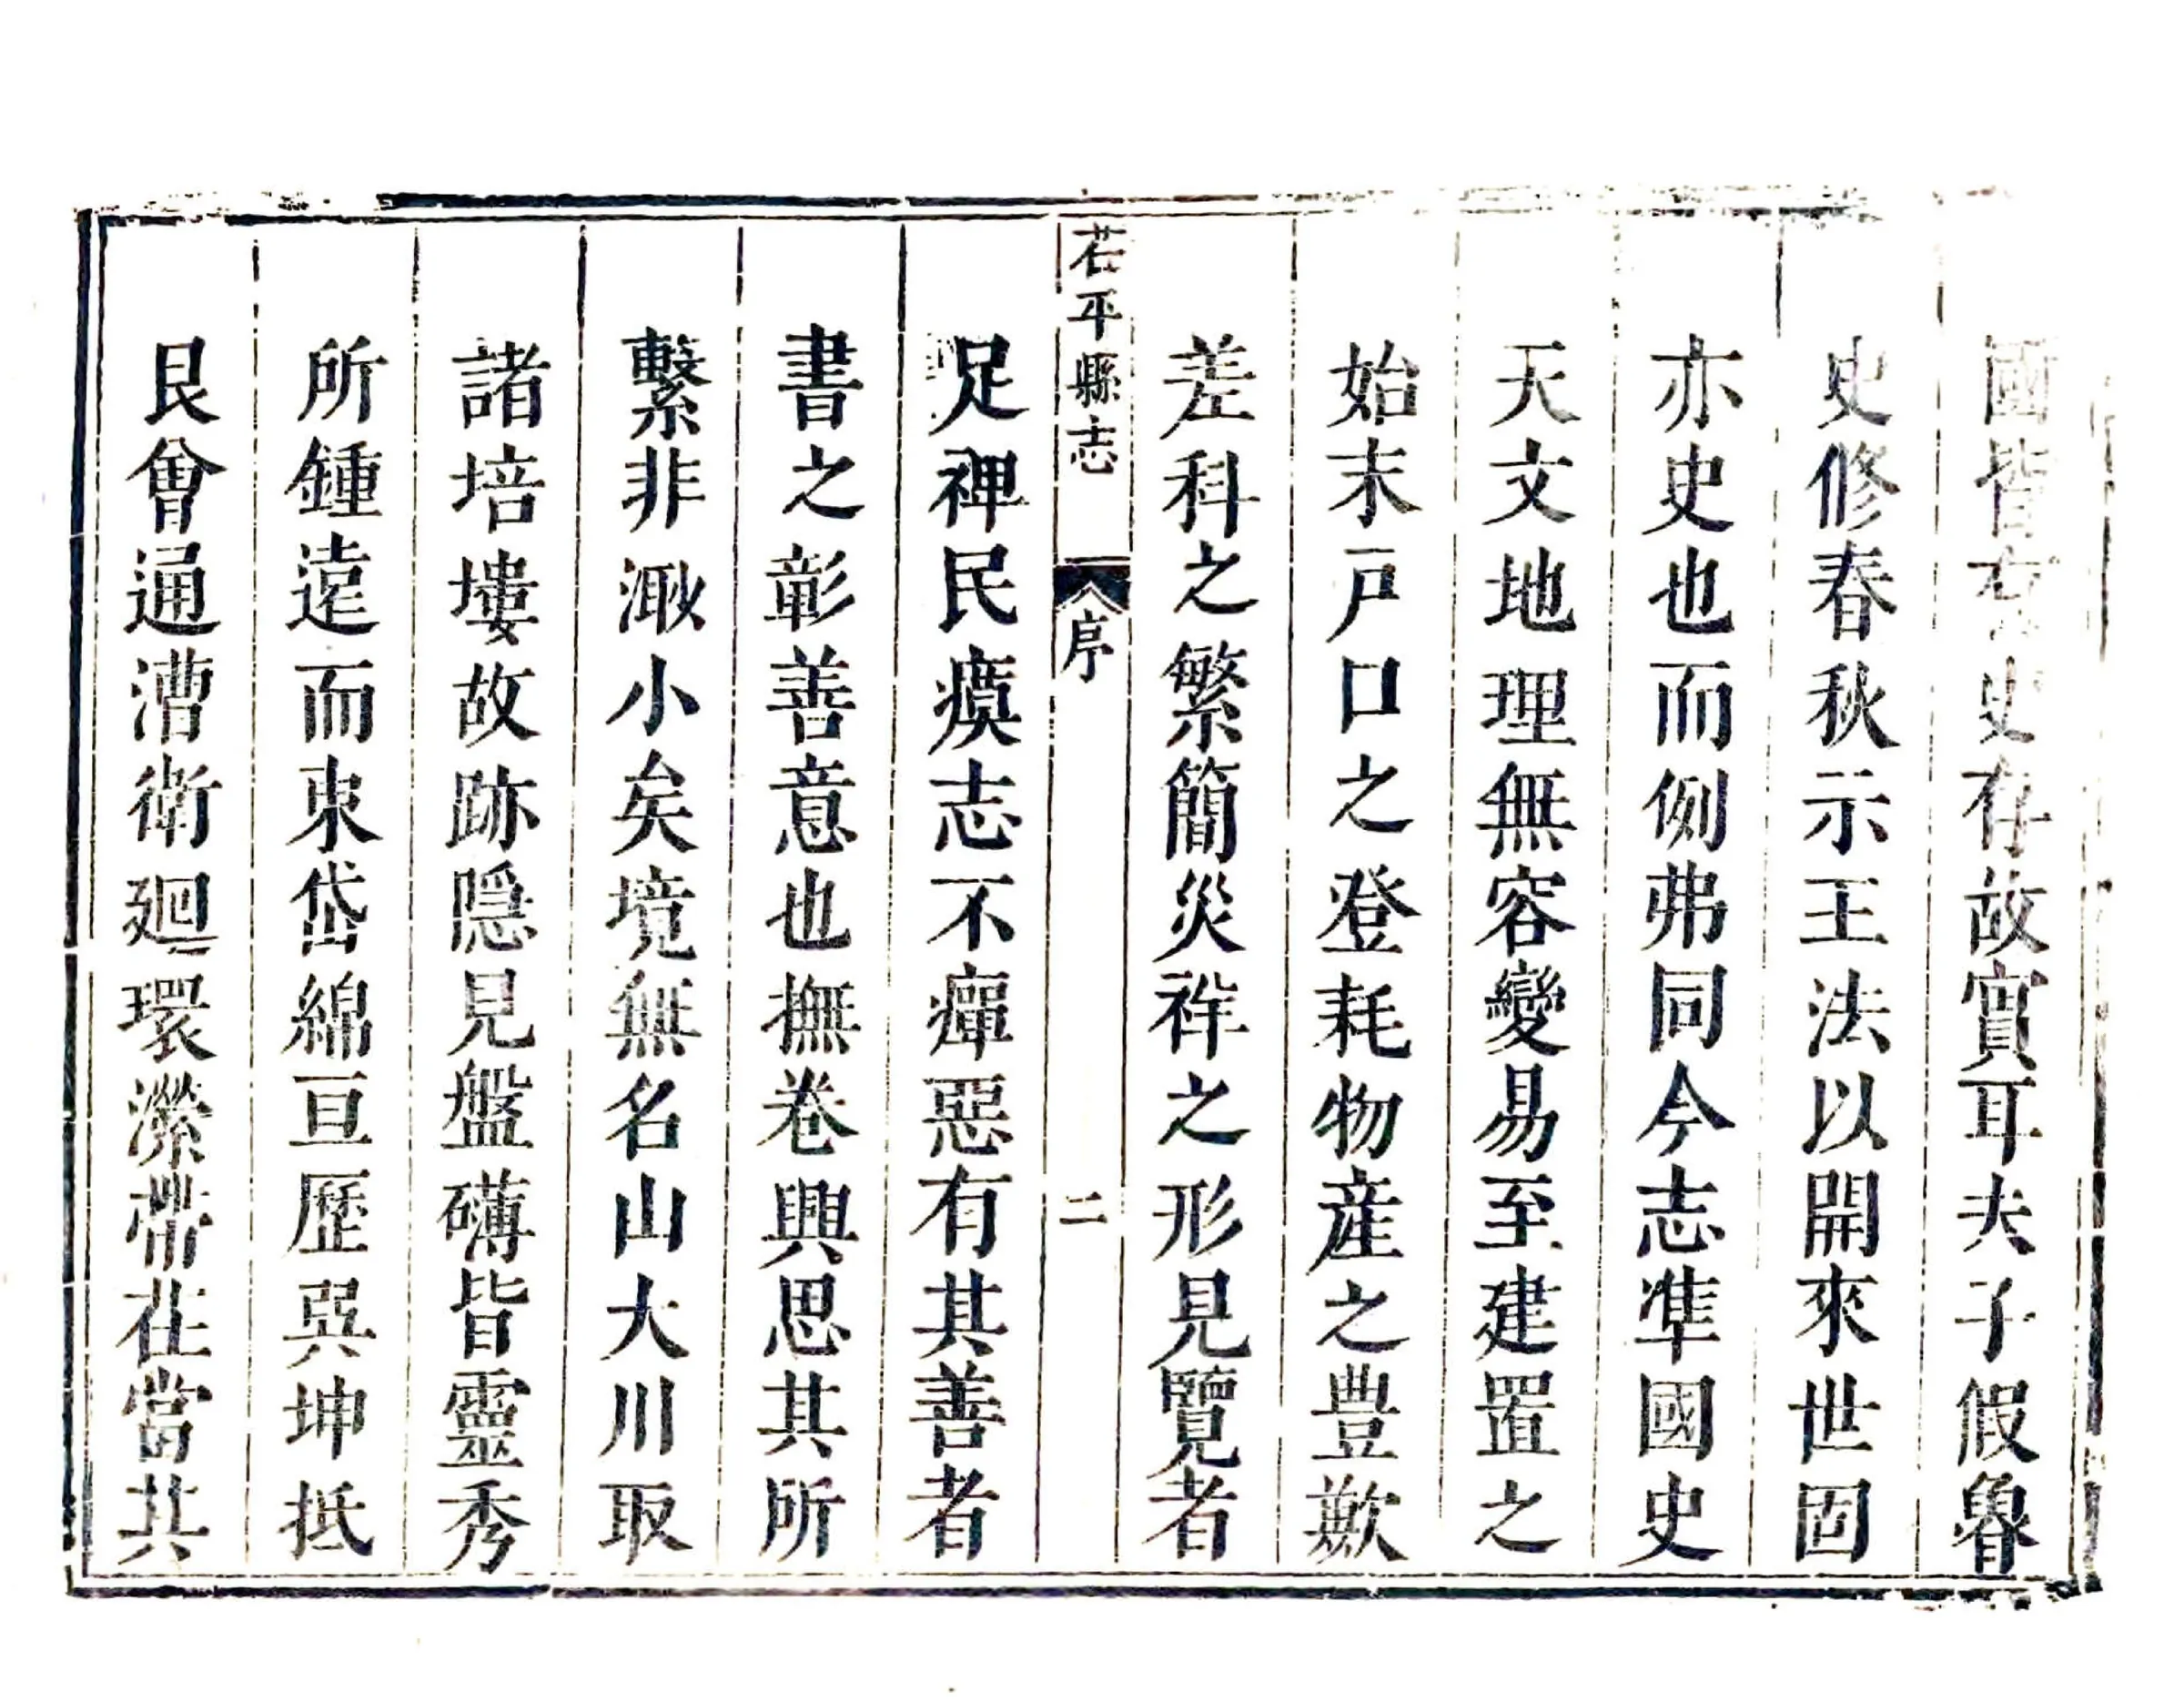 國皆有史史存故實耳夫子假魯
史修春秋示王法以開來世固
亦史也而例弗同今志準國史
天文地理無容變易至建置之
始末戸口之登耗物産之豐歉
差科之繁簡災祥之形見覽者
茌平縣志
序
二
足裨民瘼志不癉惡有其善者
書之彰善意也撫卷興思其所
繫非渺小矣境無名山大川取
諸培塿故跡隱見盤礴皆靈秀
所鍾遠而東岱綿亘歷巽坤抵
艮會通漕衛廻環瀠帶茌當其